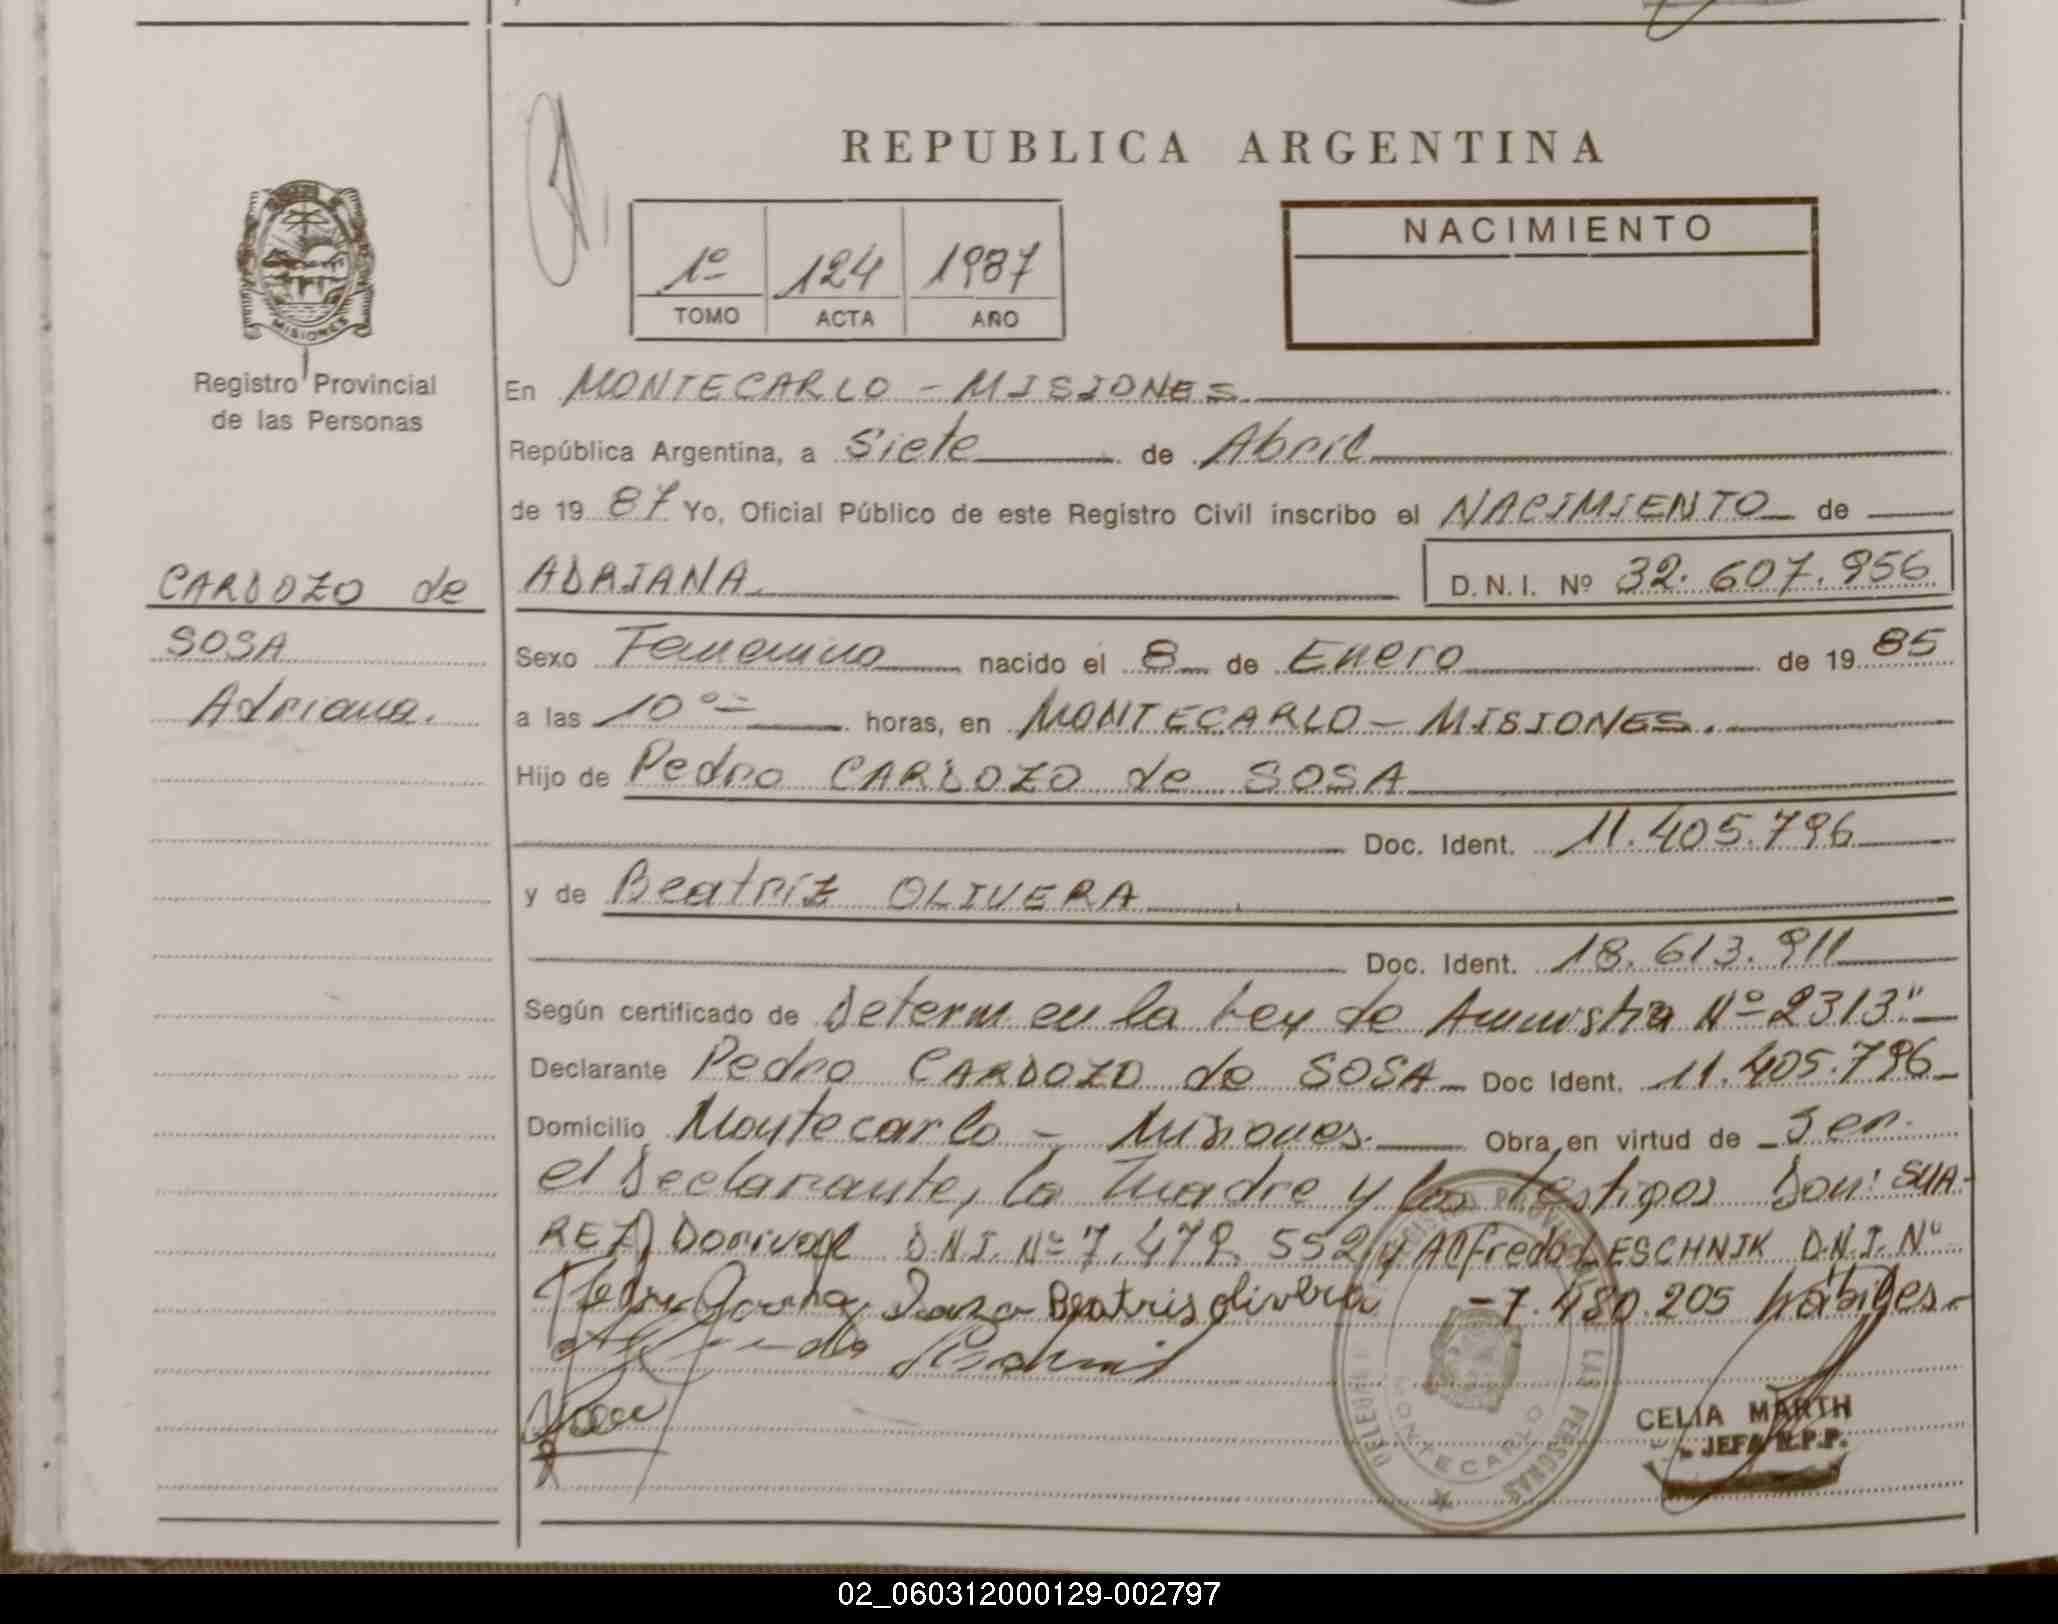 REPUBLICA ARGENTINA
MISIONES
Registro Provincial
de las Personas
1º 124 1987
TOMO ACTA AÑO
NACIMIENTO
En MONTECARLO - MISIONES
República Argentina, a Siete de Abril
de 19 87 Yo, Oficial Público de este Registro Civil inscribo el NACIMIENTO de
CARDOZO de
SOSA
Adriana.
ADRIANA D.N.I. Nº 32.607.956
Sexo Femenino nacido el 8 de Enero de 19 85
a las 10 ºº horas, en MONTECARLO - MISIONES.
Hijo de Pedro CARDOZO de SOSA
Doc. Ident. 11.405.796
y de Beatriz OLIVERA
Doc. Ident. 18.613.911
Según certificado de Determ en la Ley de Amnistia Nº 2313"
Declarante Pedro CARDOZO de SOSA Doc Ident. 11.405.796
Domicilio Montecarlo - Misiones. Obra en virtud de Ser
el Declarante, la Madre y los testigos Son: SUA-
REZ Dorival D.N.I. Nº 7.479.552 y Alfredo LESCHNIK D.N.I. Nº
Beatris olivera - 7.480.205 hábiles.
MONTECARLO
CELIA MARTH
JEFA R.P.P.
02_060312000129-002797